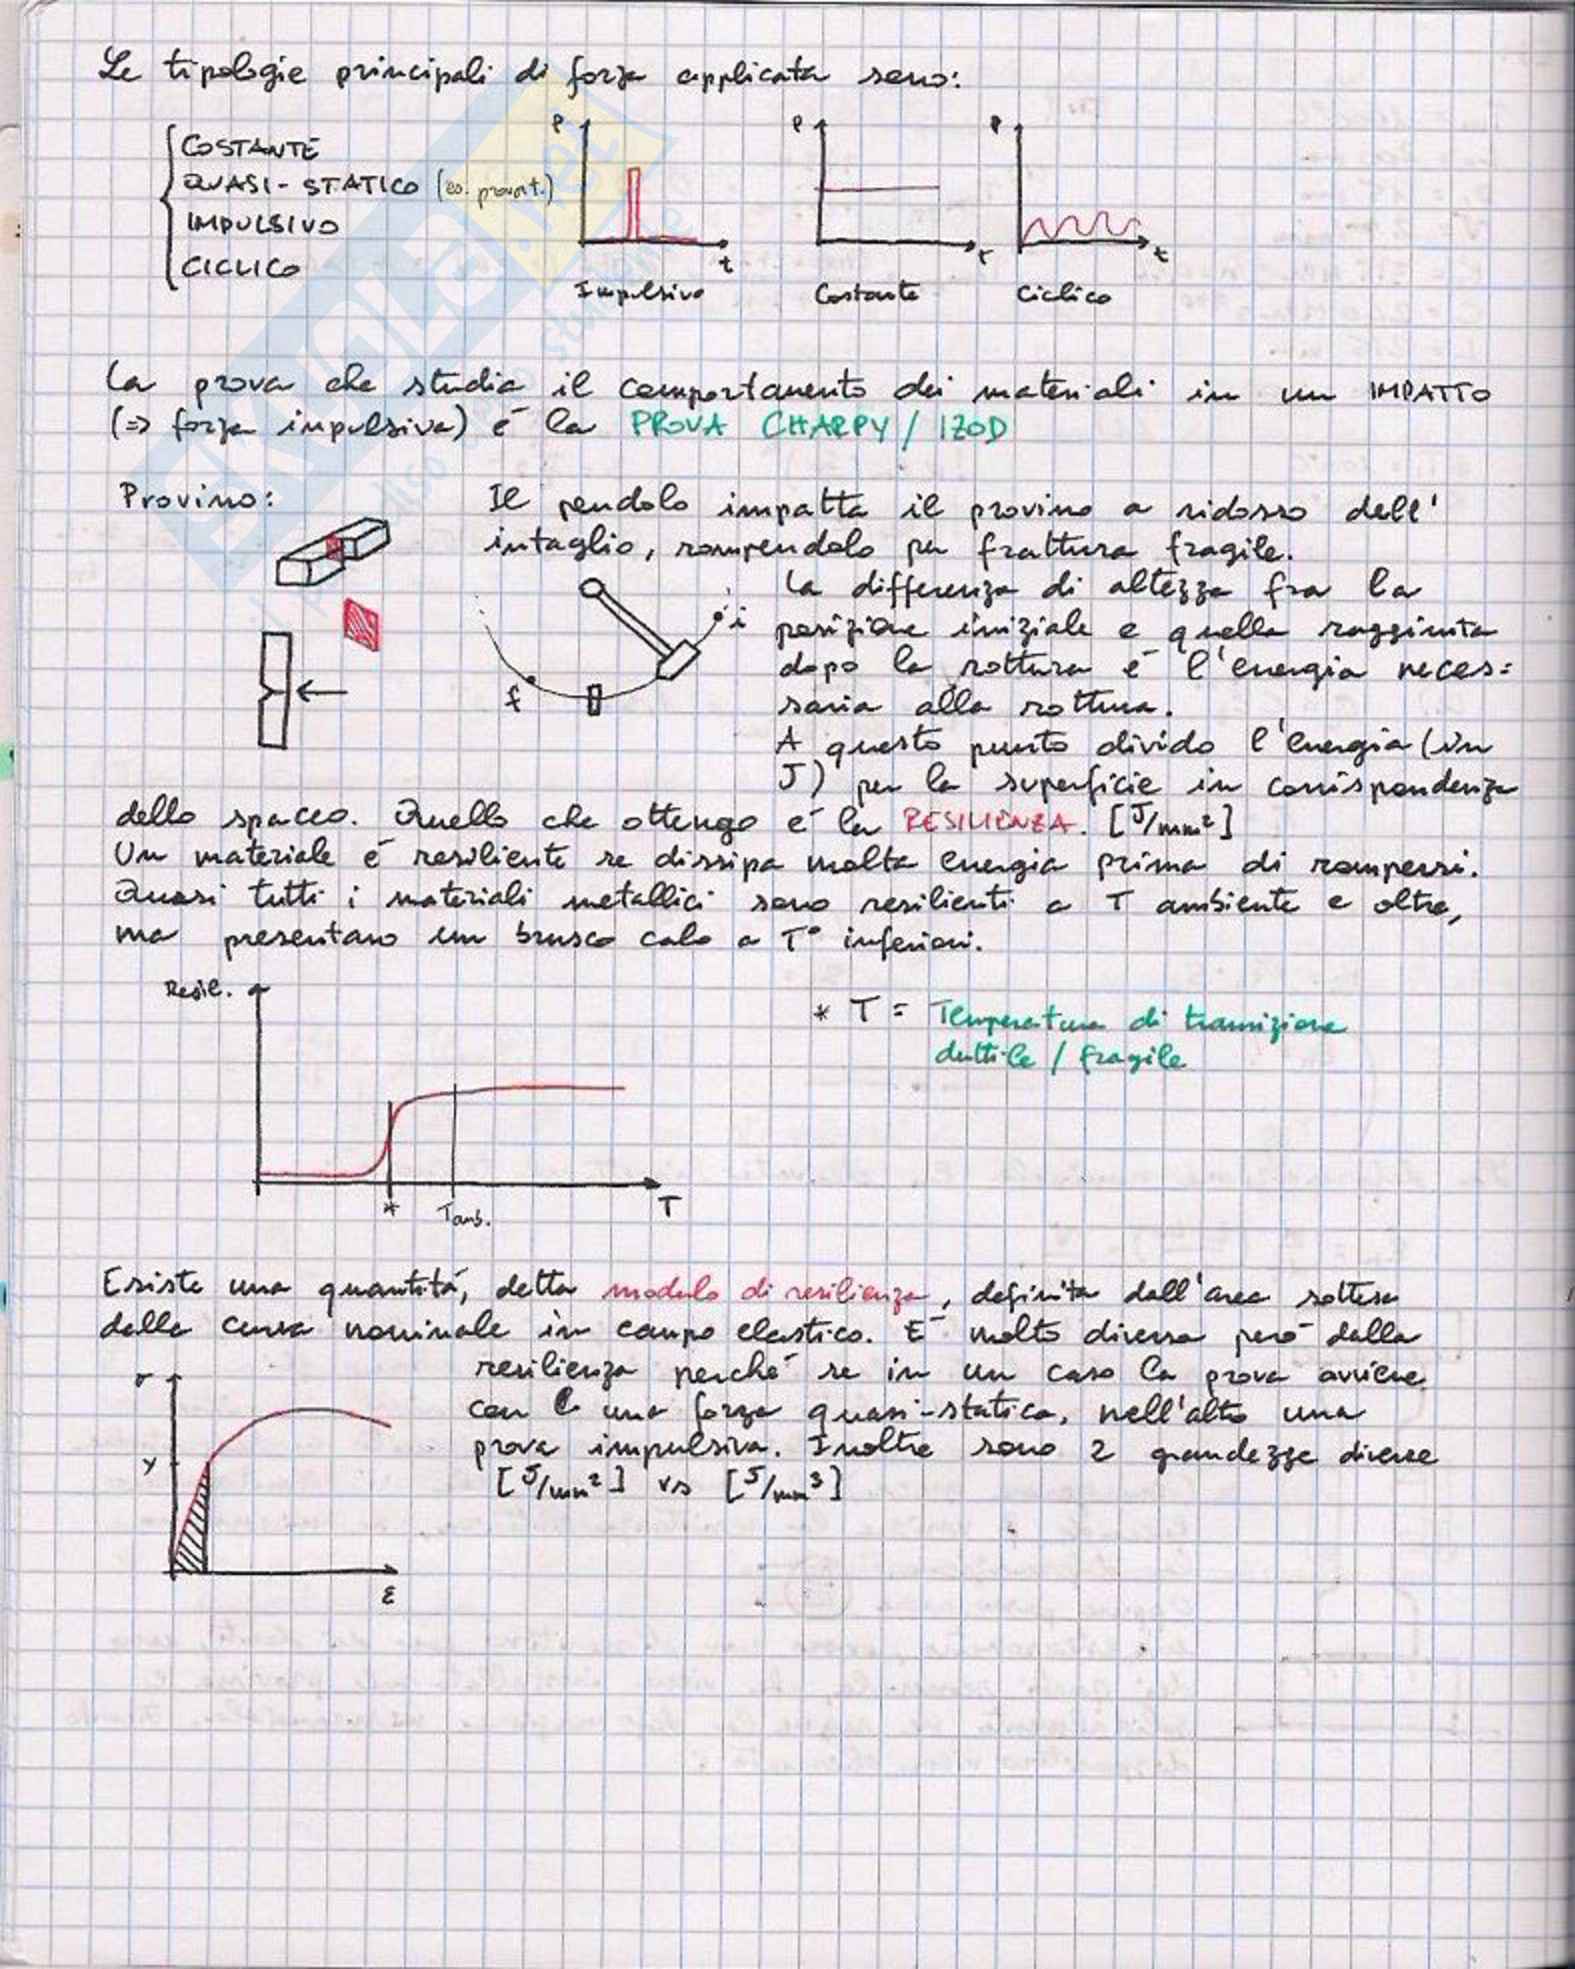 Le tipologie principali di forza applicata sono:
COSTANTE
QUASI-STATICO (es. prova t.)
IMPULSIVO
CICLICO
P
t
Impulsivo
P
t
Costante
P
t
Ciclico
La prova che studia il comportamento dei materiali in un IMPATTO
(=> forza impulsiva) é la PROVA CHARPY / IZOD
Provino:
Il pendolo impatta il provino a ridosso dell'
intaglio, rompendolo per frattura fragile.
La differenza di altezza fra la
posizione iniziale e quella raggiunta
dopo la rottura é l'energia neces=
saria alla rottura.
A questo punto divido l'energia (in
J) per la superficie in corrispondenza
i
f
dello spacco. Quello che ottengo é la RESILIENZA. [J/mm²]
Un materiale é resiliente se dissipa molta energia prima di rompersi.
Quasi tutti i materiali metallici sono resilienti a T ambiente e oltre,
ma presentano un brusco calo a T° inferiori.
Resil.
* T = Temperatura di transizione
duttile / fragile
*
Tamb.
T
Esiste una quantitá, detta modulo di resilienza, definita dall'area sottesa
dalla curva nominale in campo elastico. É molto diversa peró dalla
resilienza perché se in un caso la prova avviene
con una forza quasi-statica, nell'altro una
prova impulsiva. Inoltre sono 2 grandezze diverse
[J/mm²] vs [J/mm³]
σ
Y
ε